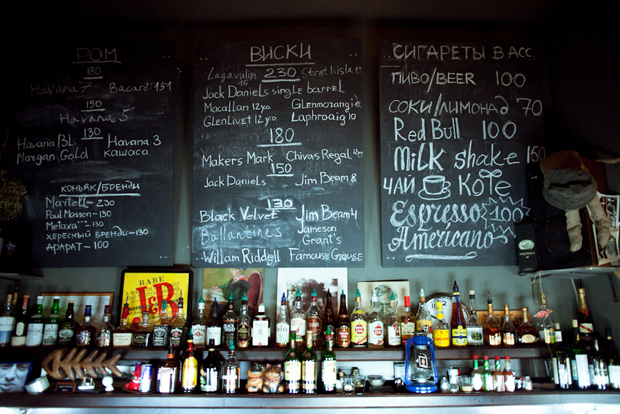 РОМ
180
Havana 7 Bacardi 151
150
Havana 5
130
Havana BL Havana 3
Morgan Gold кашаса
коньяк/бренди
Martell - 230
Paul Masson - 130
Metaxa - 130
хересный бренди - 130
АРАРАТ - 100
ВИСКИ
Lagavulin 16 230
Jack Daniels single barrel
Macallan 12 y.o Glenmorangie
Glenlivet 12 y.o Laphroaig 10
180
Makers Mark Chivas Regal 12 y.o
150
Jack Daniels Jim Beam 8
130
Black Velvet Jim Beam 4
Ballantines Jameson
Grant's
William Riddell Famous Grouse
СИГАРЕТЫ В АСС.
ПИВО/BEER 100
СОКИ/ЛИМОНАД 70
Red Bull 100
Milk shake 150
ЧАЙ КОФЕ
Espresso 100
Americano
RARE
J&B